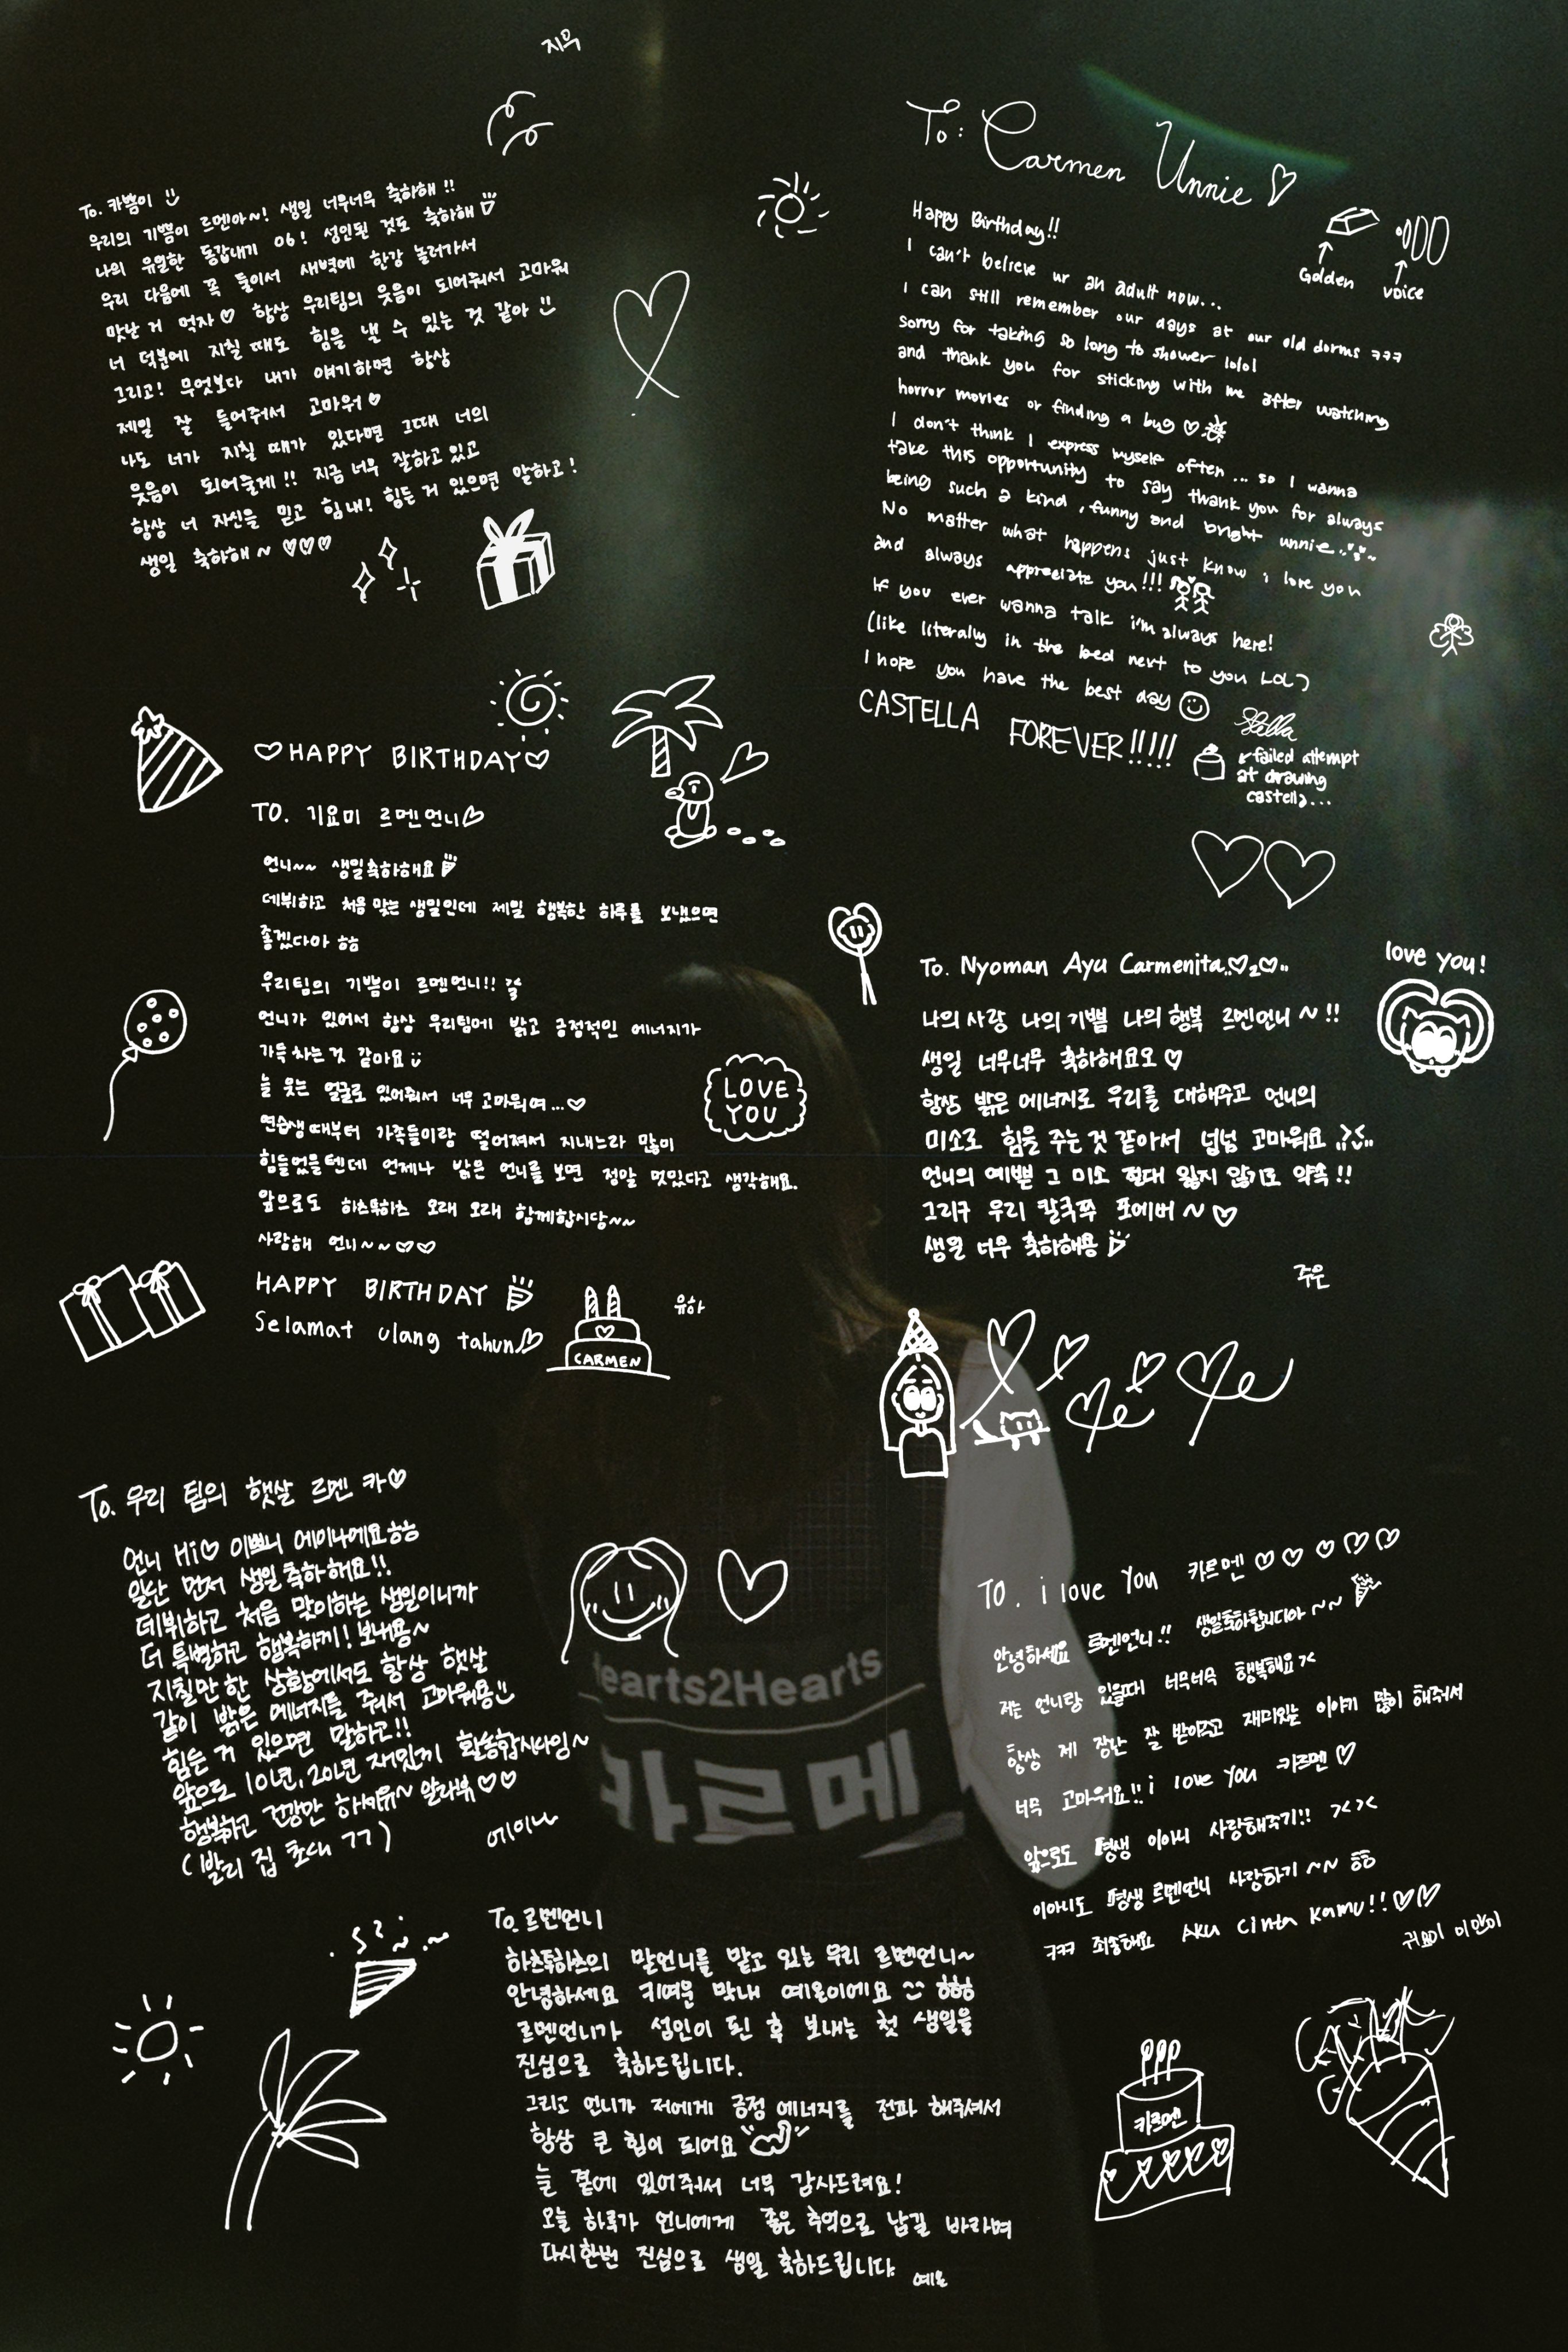 지우
To. 카쁨이
우리의 기쁨이 르멘아~! 생일 너무너무 축하해!!
나의 유일한 동갑내기 06! 성인된 것도 축하해
우리 다음에 꼭 둘이서 새벽에 한강 놀러가서
맛난 거 먹자♡ 항상 우리팀의 웃음이 되어줘서 고마워
너 덕분에 지칠 때도 힘을 낼 수 있는 것 같아
그리고! 무엇보다 내가 얘기하면 항상
제일 잘 들어줘서 고마워♡
나도 너가 지칠 때가 있다면 그때 너의
웃음이 되어줄게!! 지금 너무 잘하고 있고
항상 너 자신을 믿고 힘내! 힘든 거 있으면 말하고!
생일 축하해~ ♡♡♡
To: Carmen Unnie ♡
Happy Birthday!!
I can't believe ur an adult now...
I can still remember our days at our old dorms ㅋㅋㅋ
sorry for taking so long to shower lolol
and thank you for sticking with me after watching
horror movies or finding a bug ♡
I don't think I express myself often... so I wanna
take this opportunity to say thank you for always
being such a kind, funny and bright unnie
No matter what happens just know i love you
and always appreciate you!!!
If you ever wanna talk i'm always here!
(like literally in the bed next to you LOL)
I hope you have the best day
CASTELLA FOREVER!!!!!
Stella
failed attempt
at drawing
castella...
Golden
voice
♡HAPPY BIRTHDAY♡
TO. 기요미 르멘언니♡
언니~~ 생일축하해요
데뷔하고 처음 맞는 생일인데 제일 행복한 하루를 보냈으면
좋겠다아 ㅎㅎ
우리팀의 기쁨이 르멘언니!!
언니가 있어서 항상 우리팀에 밝고 긍정적인 에너지가
가득 차는 것 같아요
늘 웃는 얼굴로 있어줘서 너무 고마워여...♡
연습생때부터 가족들이랑 떨어져서 지내느라 많이
힘들었을텐데 언제나 밝은 언니를 보면 정말 멋있다고 생각해요.
앞으로도 하츠투하츠 오래 오래 함께합시당~~
사랑해 언니~~♡♡
HAPPY BIRTHDAY
Selamat ulang tahun♡
유하
CARMEN
LOVE
YOU
To. Nyoman Ayu Carmenita..♡2♡..
나의 사랑 나의 기쁨 나의 행복 르멘언니~!!
생일 너무너무 축하해요오 ♡
항상 밝은 에너지로 우리를 대해주고 언니의
미소로 힘을 주는 것 같아서 넘넘 고마워요
언니의 예쁜 그 미소 절대 잃지 않기로 약속!!
그리구 우리 칼국쭈 포에버~♡
생일 너무 축하해용
주은
love you!
To. 우리 팀의 햇살 르멘 카♡
언니 Hi♡ 이쁘니 에이나에요ㅎㅎ
일단 먼저 생일축하해요!!
데뷔하고 처음 맞이하는 생일이니까
더 특별하고 행복하게! 보내용~
지칠만 한 상황에서도 항상 햇살
같이 밝은 에너지를 줘서 고마워용
힘든 거 있으면 말하고!!
앞으로 10년, 20년 재밌게 활동합시다잉~
행복하고 건강만 하셔유~ 알라뷰♡♡
(발리 집 초대 ㄱㄱ)
에이나
Hearts2Hearts
카르멘
TO. i love You 카르멘 ♡♡♡♡♡
안녕하세요 르멘언니!! 생일축하합니다아~~
저는 언니랑 있을때 너무너무 행복해요><
항상 제 장난 잘 받아주고 재미있는 이야기 많이 해줘서
너무 고마워요!! i love You 카르멘 ♡
앞으로도 평생 이아니 사랑해주기!! ><><
이아니도 평생 르멘언니 사랑하기~~ ㅎㅎ
ㅋㅋㅋ 죄송해요 Aku cinta kamu!!♡♡
귀요미 이안이
카르멘
To. 르멘언니
하츠투하츠의 맏언니를 맡고 있는 우리 르멘언니~
안녕하세요 키여운 막내 예온이에요 ㅎㅎㅎ
르멘언니가 성인이 된 후 보내는 첫 생일을
진심으로 축하드립니다.
그리고 언니가 저에게 긍정 에너지를 전파 해주셔서
항상 큰 힘이 되어요
늘 곁에 있어줘서 너무 감사드려요!
오늘 하루가 언니에게 좋은 추억으로 남길 바라며
다시한번 진심으로 생일 축하드립니다.
예온